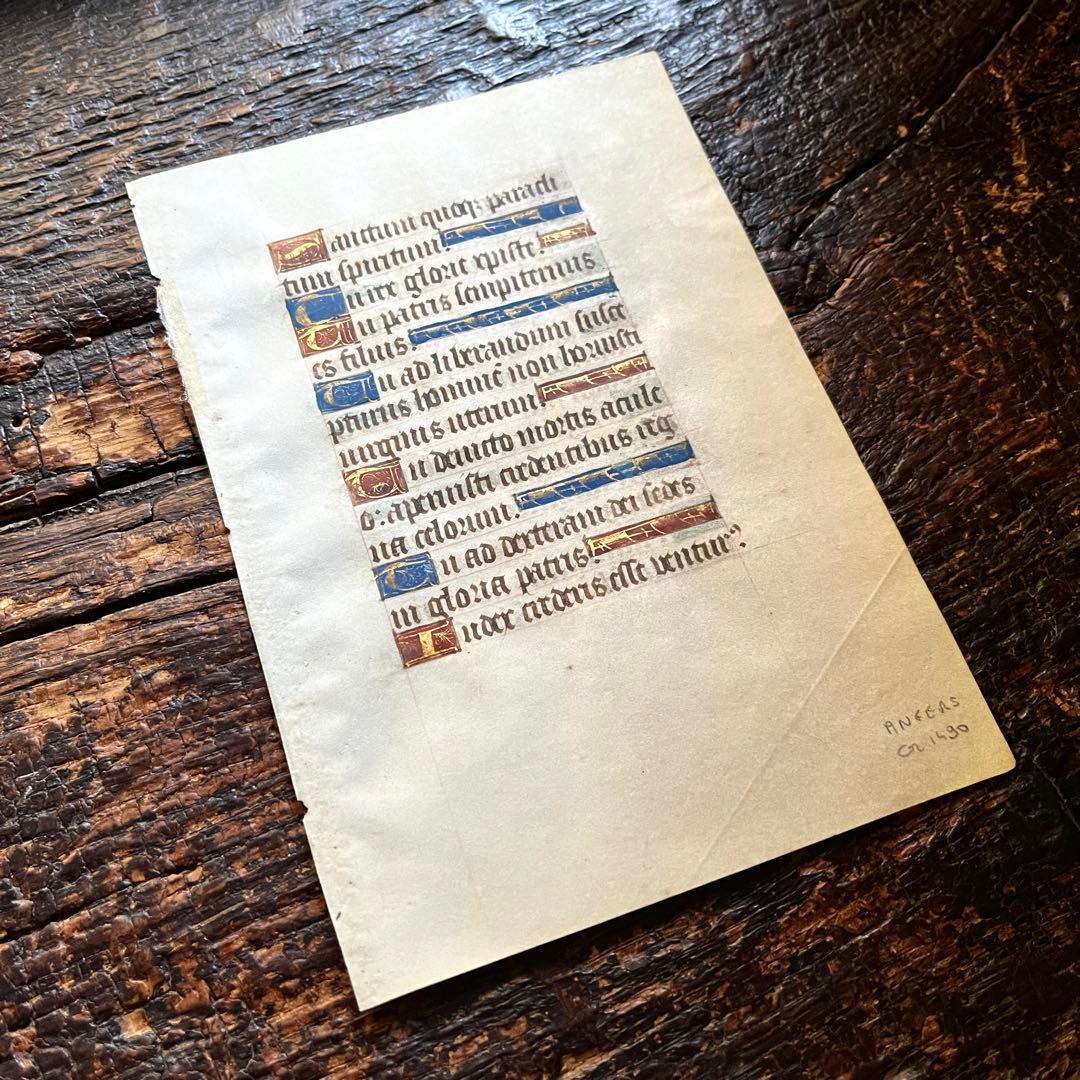 Sanctum quoqꝫ paracli
tum spiritum.
Tu rex glorie xpiste.
Tu patris sempiternus
es filius.
Tu ad liberandum susce
pturus hominē non horruisti
uirginis uterum.
Tu deuicto mortis acule
o: aperuisti credentibus reg
na celorum.
Tu ad dexteram dei sedes
in gloria patris.
Iudex crederis esse ventur⁹.
ANGERS
Cr. 1490